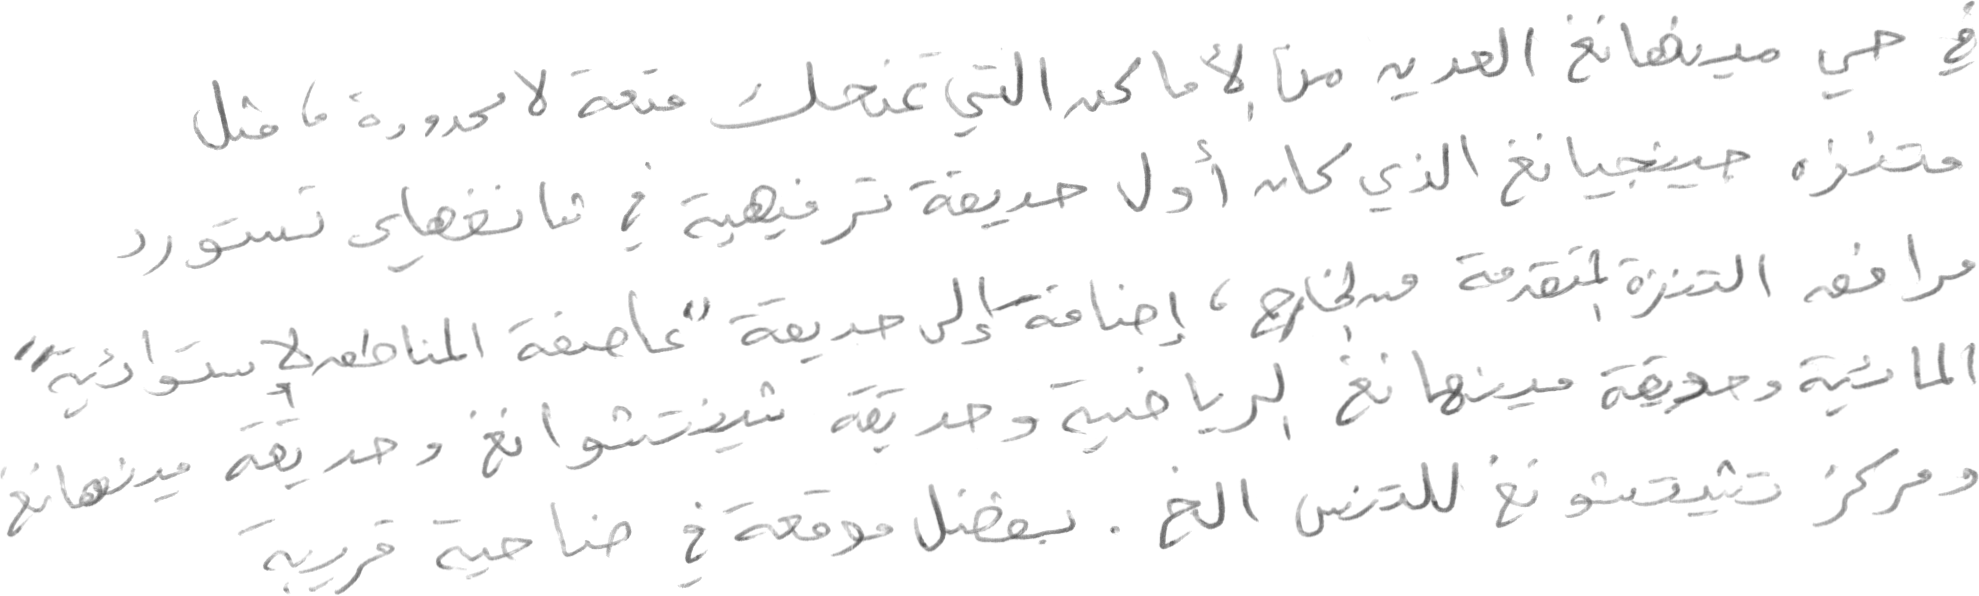 في حي مينهانغ العديد من الأماكن التي تمنحك متعة لا محدودة، مثل
متنزه جينجيانغ الذي كان أول حديقة ترفيهية في شانغهاي تستورد
مرافق التنزة المتقدمة من الخارج، إضافة إلى حديقة "عاصفة المناطق الاستوائية"
المائية وحديقة مينهانغ الرياضية وحديقة شينتشوانغ وحديقة مينهانغ
ومركز تشيتشونغ للتنس الخ. بفضل موقعة في ضاحية قريبة